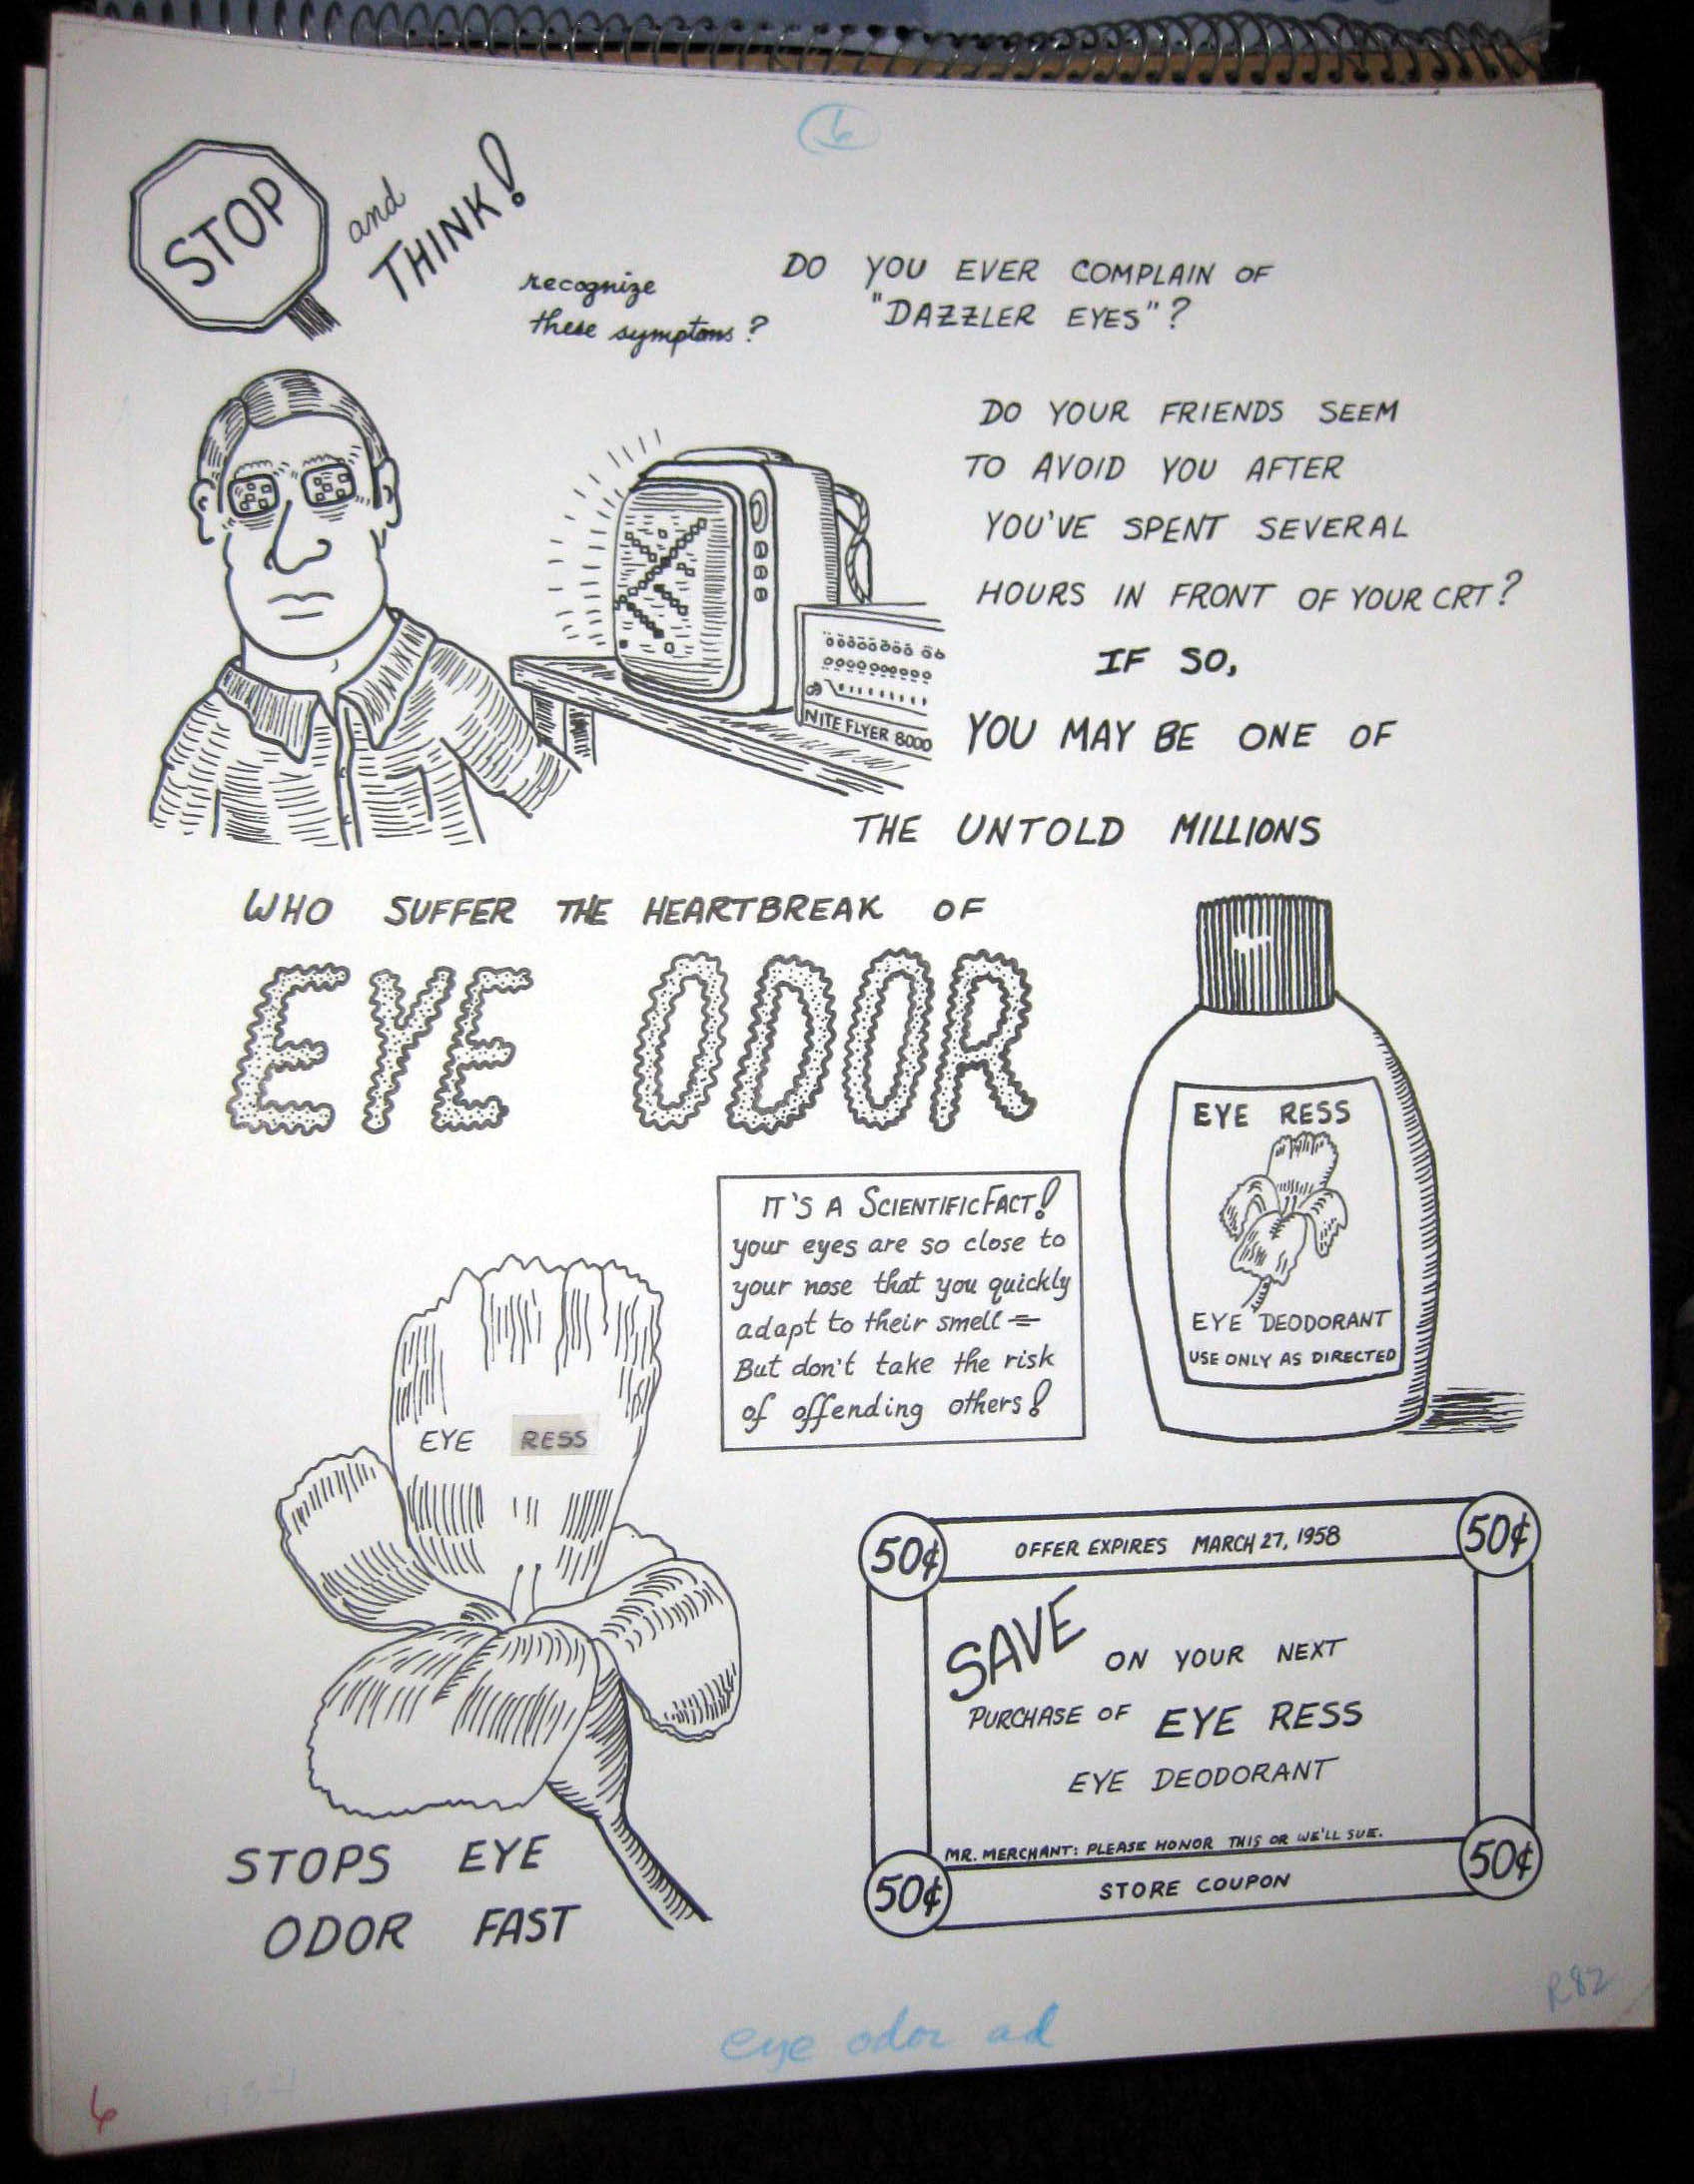 6
STOP
and
THINK!
recognize
these symptoms?
DO YOU EVER COMPLAIN OF
"DAZZLER EYES"?
DO YOUR FRIENDS SEEM
TO AVOID YOU AFTER
YOU'VE SPENT SEVERAL
HOURS IN FRONT OF YOUR CRT?
IF SO,
YOU MAY BE ONE OF
THE UNTOLD MILLIONS
NITE FLYER 8000
WHO SUFFER THE HEARTBREAK OF
EYE ODOR
IT'S A SCIENTIFIC FACT!
your eyes are so close to
your nose that you quickly
adapt to their smell =
But don't take the risk
of offending others!
EYE RESS
EYE DEODORANT
USE ONLY AS DIRECTED
EYE RESS
STOPS EYE
ODOR FAST
50¢ 50¢
OFFER EXPIRES MARCH 27, 1958
SAVE ON YOUR NEXT
PURCHASE OF EYE RESS
EYE DEODORANT
MR. MERCHANT: PLEASE HONOR THIS OR WE'LL SUE.
STORE COUPON
50¢ 50¢
R82
eye odor ad
6